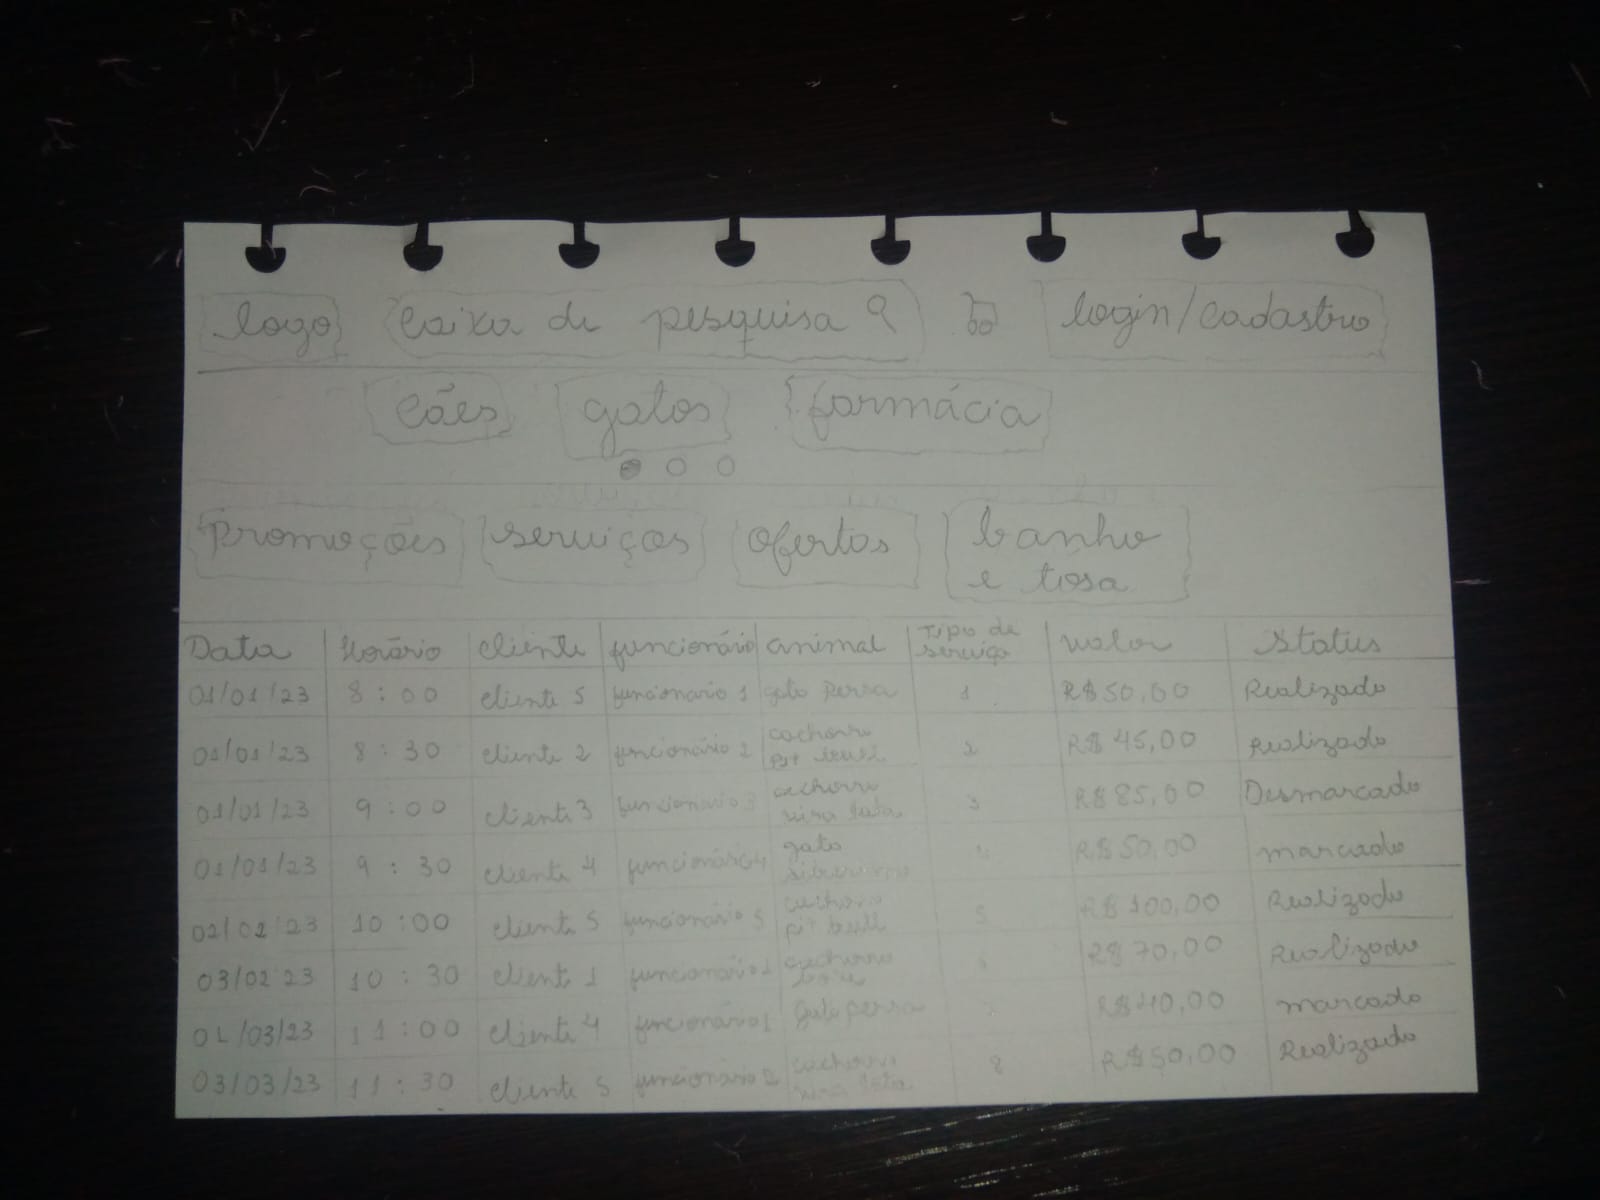 logo caixa de pesquisa login/cadastro
cães gatos farmácia
promoções serviços ofertas banho
e tosa
Data Horário cliente funcionário animal Tipo de serviço valor Status
01/01/23 8:00 cliente 5 funcionario 1 gato persa 1 R$50,00 Realizado
01/01/23 8:30 cliente 2 funcionário 2 cachorro pit bull 2 R$45,00 Realizado
01/01/23 9:00 cliente 3 funcionário 3 cachorro vira lata 3 R$85,00 Desmarcado
01/01/23 9:30 cliente 4 funcionário 4 gato R$50,00 marcado
02/02/23 10:00 cliente 5 funcionário 5 cachorro pit bull 5 R$100,00 Realizado
03/02 23 10:30 cliente 1 funcionário 1 cachorro R$70,00 Realizado
/03/23 11:00 cliente 4 funcionário 1 gato persa R$40,00 marcado
03/03/23 11:30 cliente 5 funcionário 2 cachorro vira lata 8 R$50,00 Realizado